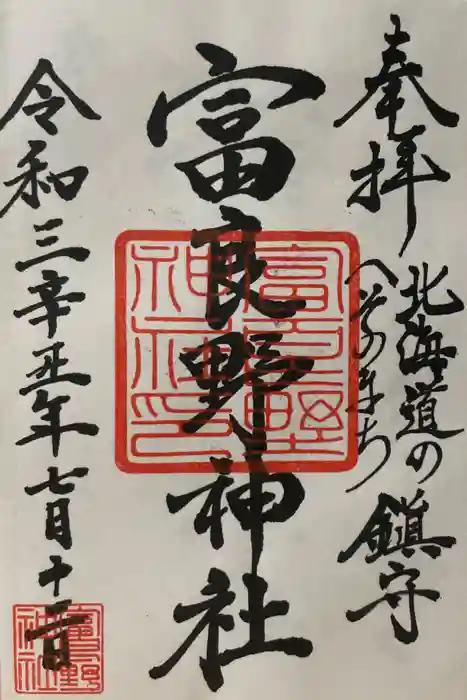 奉拝
北海道の
へそのまち
鎮守
富良野神社
富良野
神社印
令和三辛丑年七月十二日
富良野
神社